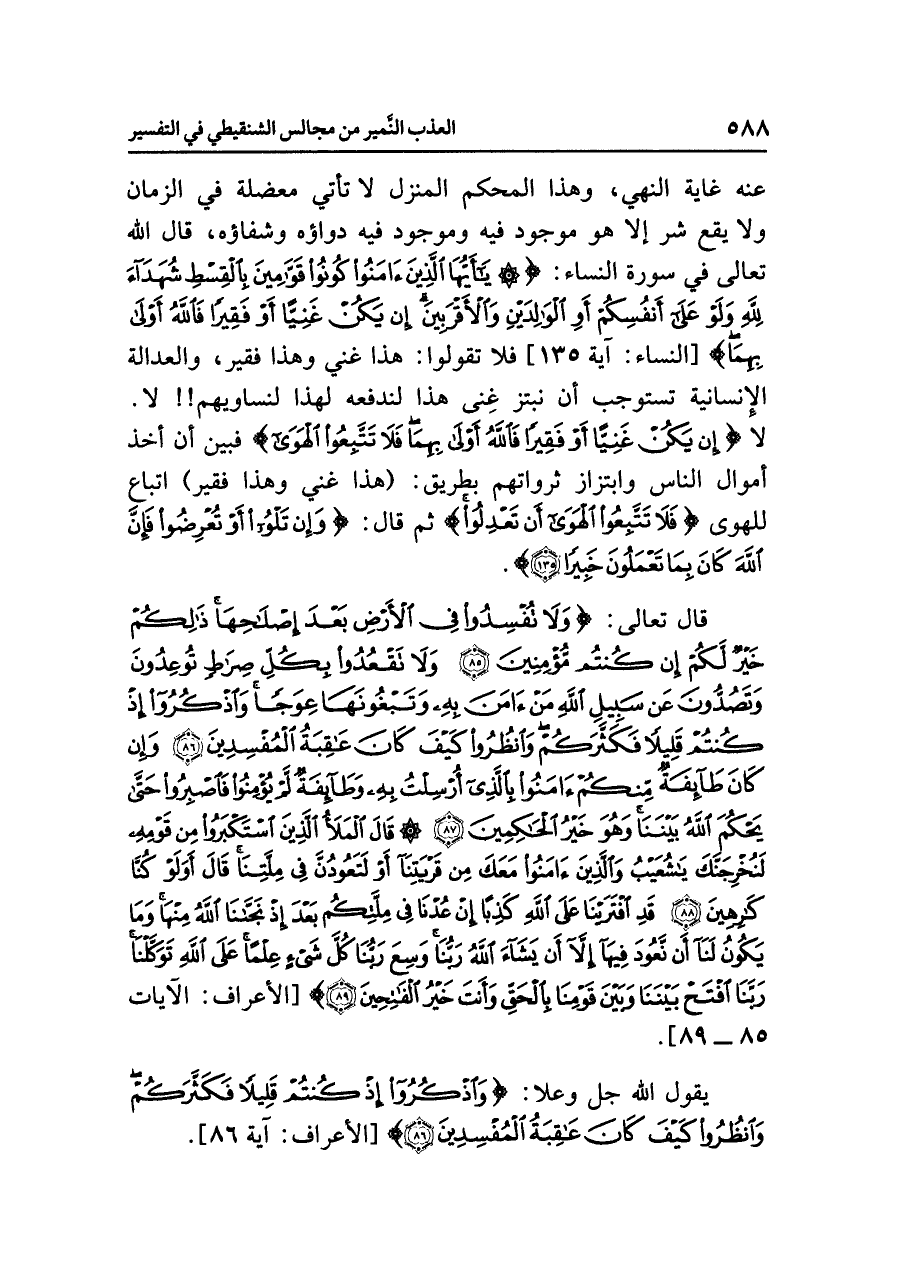 ٥٨٨ العذب النَّمير من مجالس الشنقيطي في التفسير
عنه غاية النهي، وهذا المحكم المنزل لا تأتي معضلة في الزمان
ولا يقع شر إلا هو موجود فيه وموجود فيه دواؤه وشفاؤه، قال الله
تعالى في سورة النساء: ﴿ ۞ يَٰٓأَيُّهَا ٱلَّذِينَ ءَامَنُوا۟ كُونُوا۟ قَوَّٰمِينَ بِٱلْقِسْطِ شُهَدَآءَ
لِلَّهِ وَلَوْ عَلَىٰٓ أَنفُسِكُمْ أَوِ ٱلْوَٰلِدَيْنِ وَٱلْأَقْرَبِينَ ۚ إِن يَكُنْ غَنِيًّا أَوْ فَقِيرًا فَٱللَّهُ أَوْلَىٰ
بِهِمَا ۖ﴾ [النساء: آية ١٣٥] فلا تقولوا: هذا غني وهذا فقير، والعدالة
الإنسانية تستوجب أن نبتز غِنى هذا لندفعه لهذا لنساويهم!! لا.
لا ﴿ إِن يَكُنْ غَنِيًّا أَوْ فَقِيرًا فَٱللَّهُ أَوْلَىٰ بِهِمَا ۖ فَلَا تَتَّبِعُوا۟ ٱلْهَوَىٰٓ﴾ فبين أن أخذ
أموال الناس وابتزاز ثرواتهم بطريق: (هذا غني وهذا فقير) اتباع
للهوى ﴿ فَلَا تَتَّبِعُوا۟ ٱلْهَوَىٰٓ أَن تَعْدِلُوا۟ ۚ﴾ ثم قال: ﴿ وَإِن تَلْوُۥٓا۟ أَوْ تُعْرِضُوا۟ فَإِنَّ
ٱللَّهَ كَانَ بِمَا تَعْمَلُونَ خَبِيرًا ١٣٥﴾.
قال تعالى: ﴿ وَلَا تُفْسِدُوا۟ فِى ٱلْأَرْضِ بَعْدَ إِصْلَٰحِهَا ۚ ذَٰلِكُمْ
خَيْرٌ لَّكُمْ إِن كُنتُم مُّؤْمِنِينَ ٨٥ وَلَا تَقْعُدُوا۟ بِكُلِّ صِرَٰطٍ تُوعِدُونَ
وَتَصُدُّونَ عَن سَبِيلِ ٱللَّهِ مَنْ ءَامَنَ بِهِۦ وَتَبْغُونَهَا عِوَجًا ۚ وَٱذْكُرُوٓا۟ إِذْ
كُنتُمْ قَلِيلًا فَكَثَّرَكُمْ ۖ وَٱنظُرُوا۟ كَيْفَ كَانَ عَٰقِبَةُ ٱلْمُفْسِدِينَ ٨٦ وَإِن
كَانَ طَآئِفَةٌ مِّنكُمْ ءَامَنُوا۟ بِٱلَّذِىٓ أُرْسِلْتُ بِهِۦ وَطَآئِفَةٌ لَّمْ يُؤْمِنُوا۟ فَٱصْبِرُوا۟ حَتَّىٰ
يَحْكُمَ ٱللَّهُ بَيْنَنَا ۚ وَهُوَ خَيْرُ ٱلْحَٰكِمِينَ ٨٧ ۞ قَالَ ٱلْمَلَأُ ٱلَّذِينَ ٱسْتَكْبَرُوا۟ مِن قَوْمِهِۦ
لَنُخْرِجَنَّكَ يَٰشُعَيْبُ وَٱلَّذِينَ ءَامَنُوا۟ مَعَكَ مِن قَرْيَتِنَآ أَوْ لَتَعُودُنَّ فِى مِلَّتِنَا ۚ قَالَ أَوَلَوْ كُنَّا
كَٰرِهِينَ ٨٨ قَدِ ٱفْتَرَيْنَا عَلَى ٱللَّهِ كَذِبًا إِنْ عُدْنَا فِى مِلَّتِكُم بَعْدَ إِذْ نَجَّىٰنَا ٱللَّهُ مِنْهَا ۚ وَمَا
يَكُونُ لَنَآ أَن نَّعُودَ فِيهَآ إِلَّآ أَن يَشَآءَ ٱللَّهُ رَبُّنَا ۚ وَسِعَ رَبُّنَا كُلَّ شَىْءٍ عِلْمًا ۚ عَلَى ٱللَّهِ تَوَكَّلْنَا ۚ
رَبَّنَا ٱفْتَحْ بَيْنَنَا وَبَيْنَ قَوْمِنَا بِٱلْحَقِّ وَأَنتَ خَيْرُ ٱلْفَٰتِحِينَ ٨٩﴾ [الأعراف: الآيات
٨٥ ــ ٨٩].
يقول الله جل وعلا: ﴿ وَٱذْكُرُوٓا۟ إِذْ كُنتُمْ قَلِيلًا فَكَثَّرَكُمْ ۖ
وَٱنظُرُوا۟ كَيْفَ كَانَ عَٰقِبَةُ ٱلْمُفْسِدِينَ ٨٦﴾ [الأعراف: آية ٨٦].